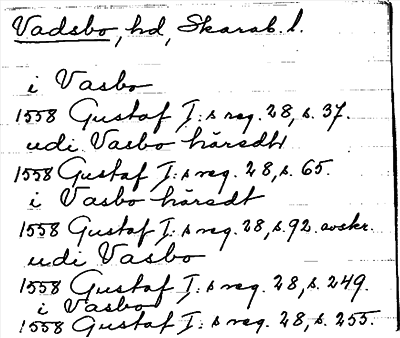 Vadsbo, hd, Skarab. l.
i Vasbo
1558 Gustaf I:s reg. 28, s. 37.
udi Vasbo häredt
1558 Gustaf I:s reg. 28, s. 65.
i Vasbo häredt
1558 Gustaf I:s reg. 28, s. 92. avskr.
udi Vasbo
1558 Gustaf I:s reg. 28, s. 249.
i Vasbo
1558 Gustaf I:s reg. 28, s. 255.